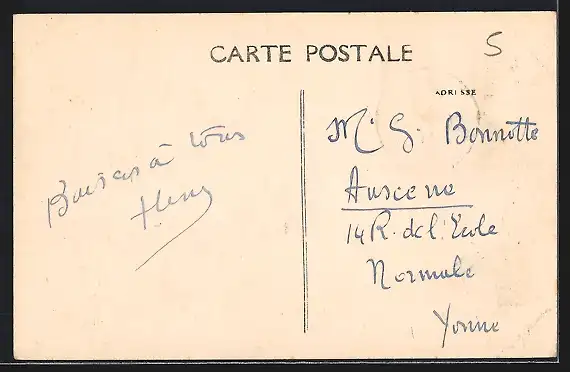 CARTE POSTALE
5
ADRISSE
Mr G. Bonnotte
Auxerre
14 R. de l'Ecole
Normale
Yonne
Baisers à tous
Henry